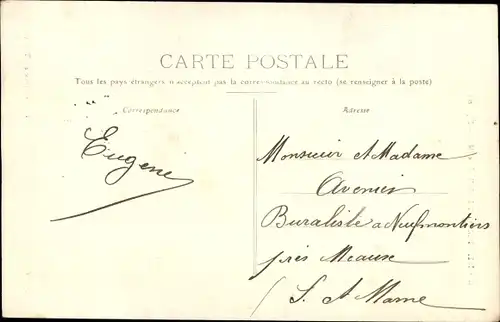 CARTE POSTALE
Tous les pays étrangers n'acceptent pas la correspondance au recto (se renseigner à la poste)
Correspondance
Adresse
Eugène
Monsieur et Madame
Avenier
Buraliste a Neufmontiers
près Meause
S. et Marne